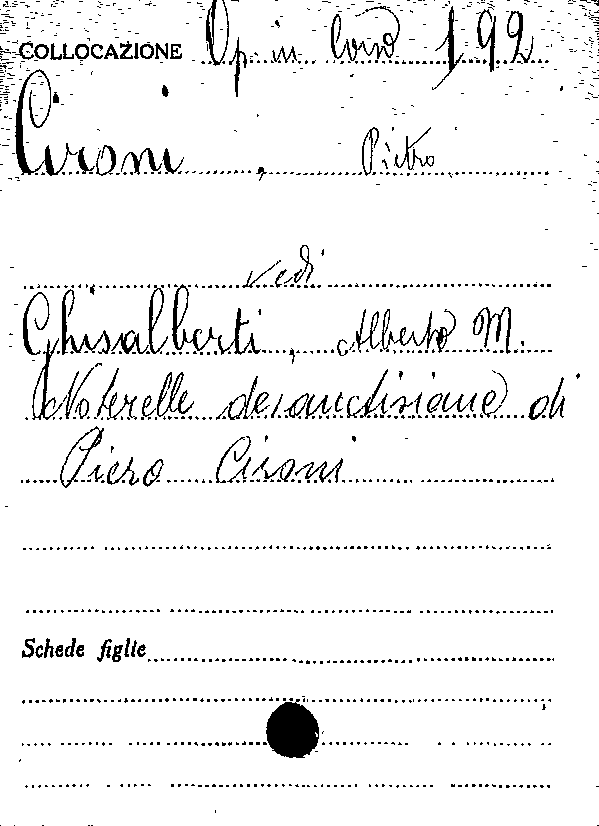 COLLOCAZIONE Op. in Corso 192
Cironi, Pietro
vedi
Ghisalberti, Alberto M.
Noterelle desanctisiane di
Piero Cironi
Schede figlie